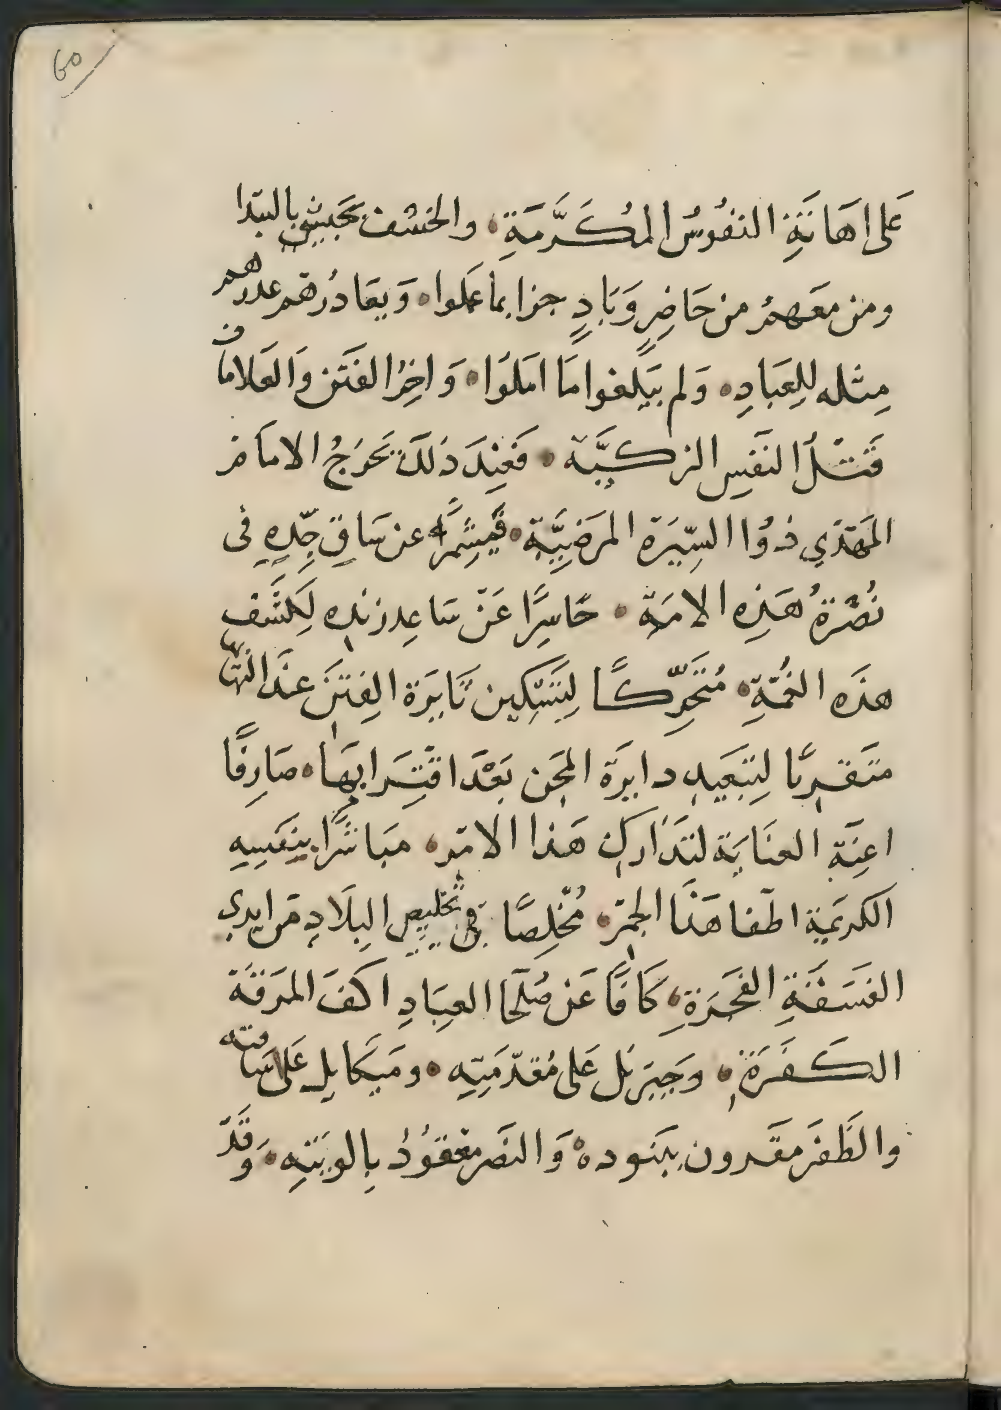 60
عَلى اهَانَةِ النفُوسُ المُكَرَّمَةِ، والخسْف بجَيشٍ بالبَيدا
ومن معَهمُ من حَاضِرٍ وَبَادٍ جزا بما عَمَلوا، وَيغادُرهَم عدرهم
مِثله لِلعِبَادِ، وَلم يَبلغوا مَا امَلوَا، وَاخِرُ الفتَن وَالعَلامات
قَتلُ النَفسِ الزكيَّة، فَعِندَ ذلكَ يخرَجُ الامَامُ
المَهَدي ذوُا السِّيرَة المرَضِيَّة، فيشمَّر عن سَاقِ جِدّهِ فى
نُصْرَةُ هَذِه الامَة، حَاسِرًا عَنْ سَاعِد زنده لِكَشْف
هذَه الغُمَّةِ، مُتَحَرِّكًا لِتَسْكِين نَايرَة الفِتَن عندَ التهابها
متَقربًا لِتبَعيد دايرَة المِحَن بَعْدَ اقتِرَابهَا، صَارِفًا
اعِنَّة العنَايَة لتدَارك هَذا الامَر، مبَاشرًا بنفسِهِ
الكريمَة اطفا هَذَا الجمَر، مُخلِصًا في تخليص البِلَادِ مَن ايدي
الفسَقَةِ الفجَرَةِ، كَافًا عَن صُلَحا العِبَادِ اكفَ المرَقَة
الكَفَرَةِ، وجَبرَيل عَلى مُقدّمَتِه، ومَيكايل عَلى سَاقته
والظَفَر مقَرون ببَنوده، وَالنصَر معَقوُدُ بالويَتهِ، وَقَد